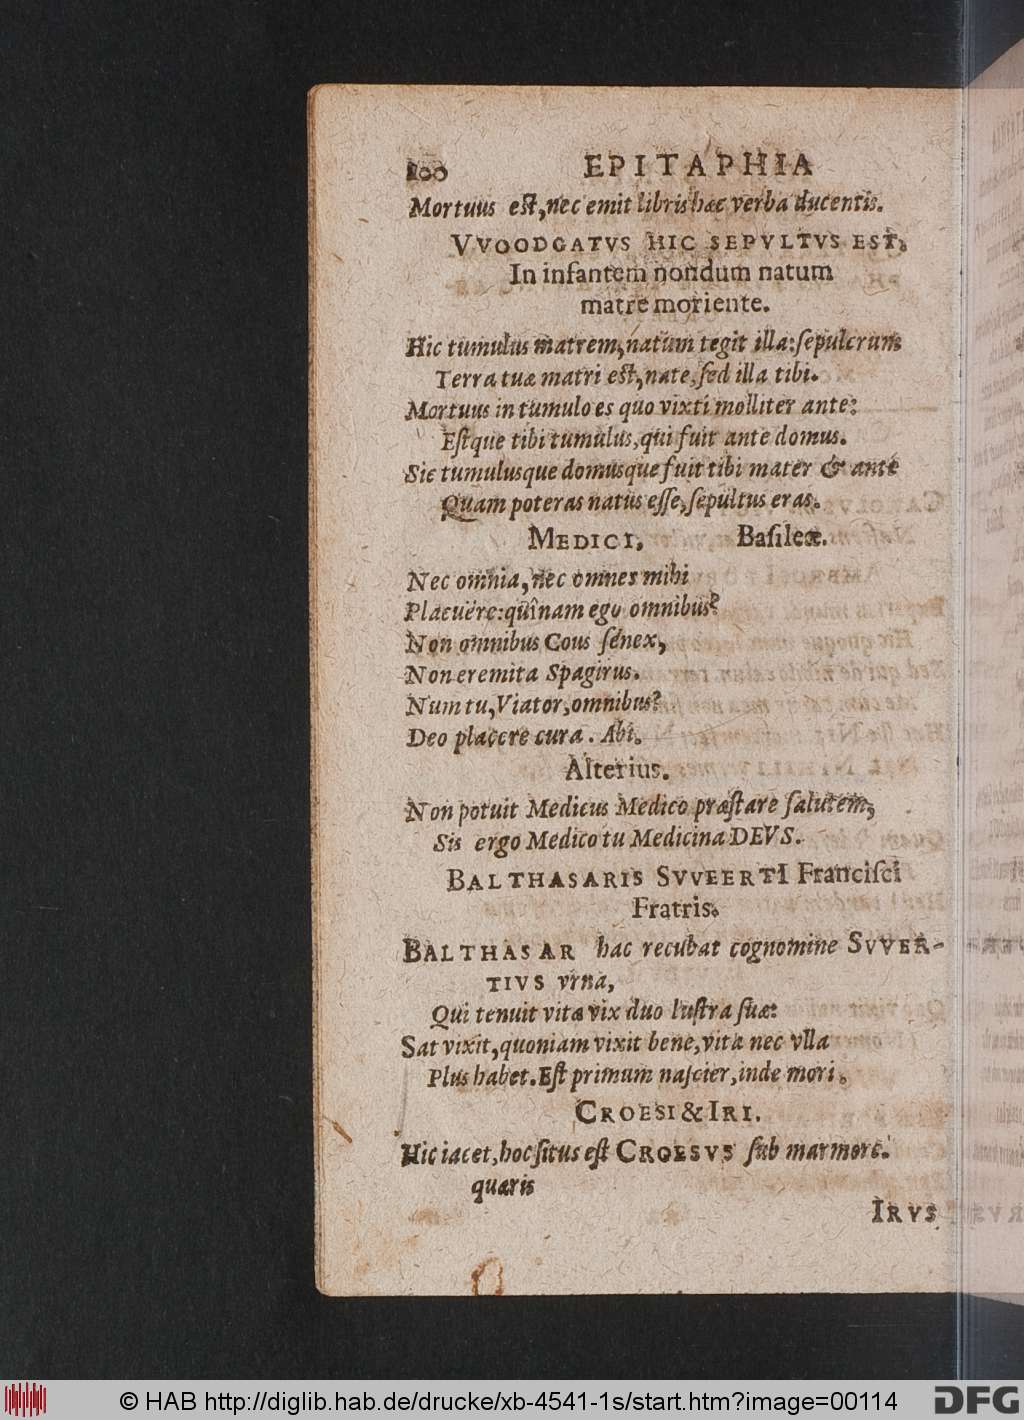 100 EPITAPHIA
Mortuus est, nec emit libris hæc verba ducentis.
VVOODGATVS HIC SEPVLTVS EST.
In infantem nondum natum
matre moriente.
Hic tumulus matrem, natum tegit illa: ſepulcrum
Terra tuæ matri eſt, nate, ſed illa tibi.
Mortuus in tumulo es quo vixti molliter ante:
Eſtque tibi tumulus, qui fuit ante domus.
Sic tumulusque domusque fuit tibi mater & ante
Quam poteras natus eſſe, ſepultus eras.
MEDICI, Baſileæ.
Nec omnia, nec omnes mihi
Placuêre: quînam ego omnibus?
Non omnibus Cous ſenex,
Non eremita Spagirus.
Num tu, Viator, omnibus?
Deo placere cura. Abi.
Alterius.
Non potuit Medicus Medico præſtare ſalutem,
Sis ergo Medico tu Medicina DEVS.
BALTHASARIS SVVEERTI Franciſci
Fratris.
BALTHASAR hac recubat cognomine SVVER-
TIVS vrna,
Qui tenuit vitæ vix duo luſtra ſuæ:
Sat vixit, quoniam vixit bene, vita nec vlla
Plus habet. Eſt primum naſcier, inde mori.
CROESI & IRI.
Hic iacet, hoc ſitus eſt CROESVS ſub marmore.
quæris
IRVS
© HAB http://diglib.hab.de/drucke/xb-4541-1s/start.htm?image=00114
DFG